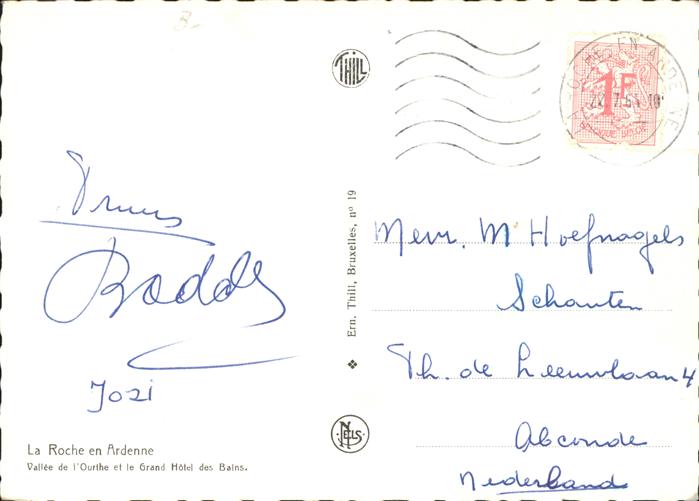 THILL
LA ROCHE EN ARDENNE
1F
BELGIQUE BELGIË
Ern. Thill, Bruxelles, nº 19
NELS
Mevr. M Hoefnagels
Schouten
Th. de Leeuwlaan 4
Abconde
Nederland
Bodds
Jozi
La Roche en Ardenne
Vallée de l'Ourthe et le Grand Hôtel des Bains.